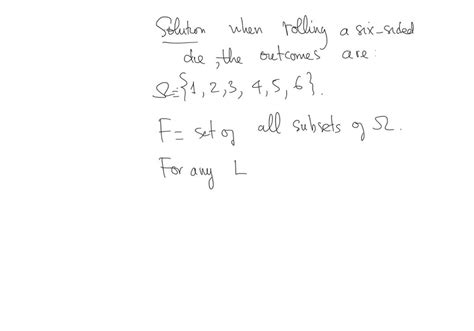 Solution when rolling a six-sided
die, the outcomes are:
Ω={1, 2, 3, 4, 5, 6}.
F= set of all subsets of Ω.
For any L